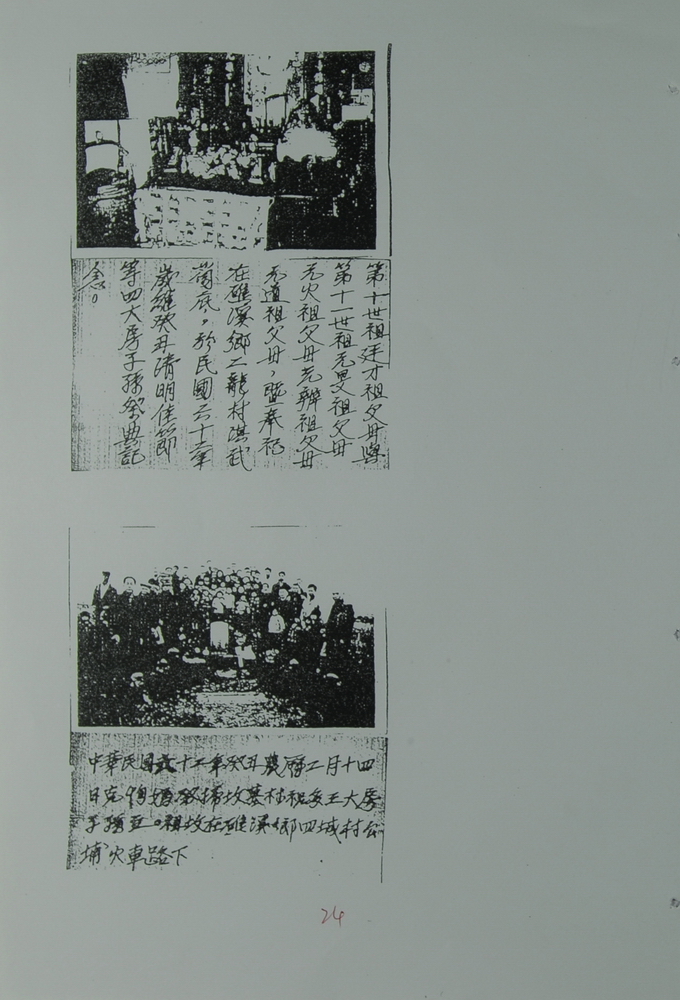 第十世祖廷才祖父母與
第十一世祖元叟祖父母
元火祖父母元辦祖父母
元道祖父母，暨奉祀
在礁溪鄉二龍村淇武
蘭底。於民國六十二年
歲維癸丑清明佳節
等四大房子孫祭典記
念。
中華民國六十二年癸丑農曆二月十四
日 掃坟墓 大房
子孫 。祖坟在礁溪鄉四城村公
埔火車路下
24